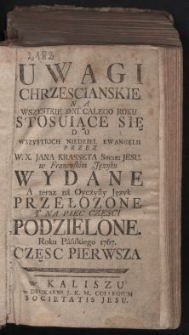 2182
UWAGI
CHRZESCIANSKIE
NA
WSZYSTKIE DNI CAŁEGO ROKU
STOSUIĄCE SIĘ
DO
WSZYSTKICH NIEDZIEL EWANGELII
PRZEZ
W. X. JANA KRASSETA Societ: JESU
w Francuskim Języku
WYDANE
A teraz na Oyczysty Język
PRZEŁOZONE
Y NA PIĘC CZĘSCI
PODZIELONE.
Roku Pańskiego 1767.
CZĘSC PIERWSZA
w KALISZU
w DRUKARNI J. K. M. COLLEGIUM
SOCIETATIS JESU.